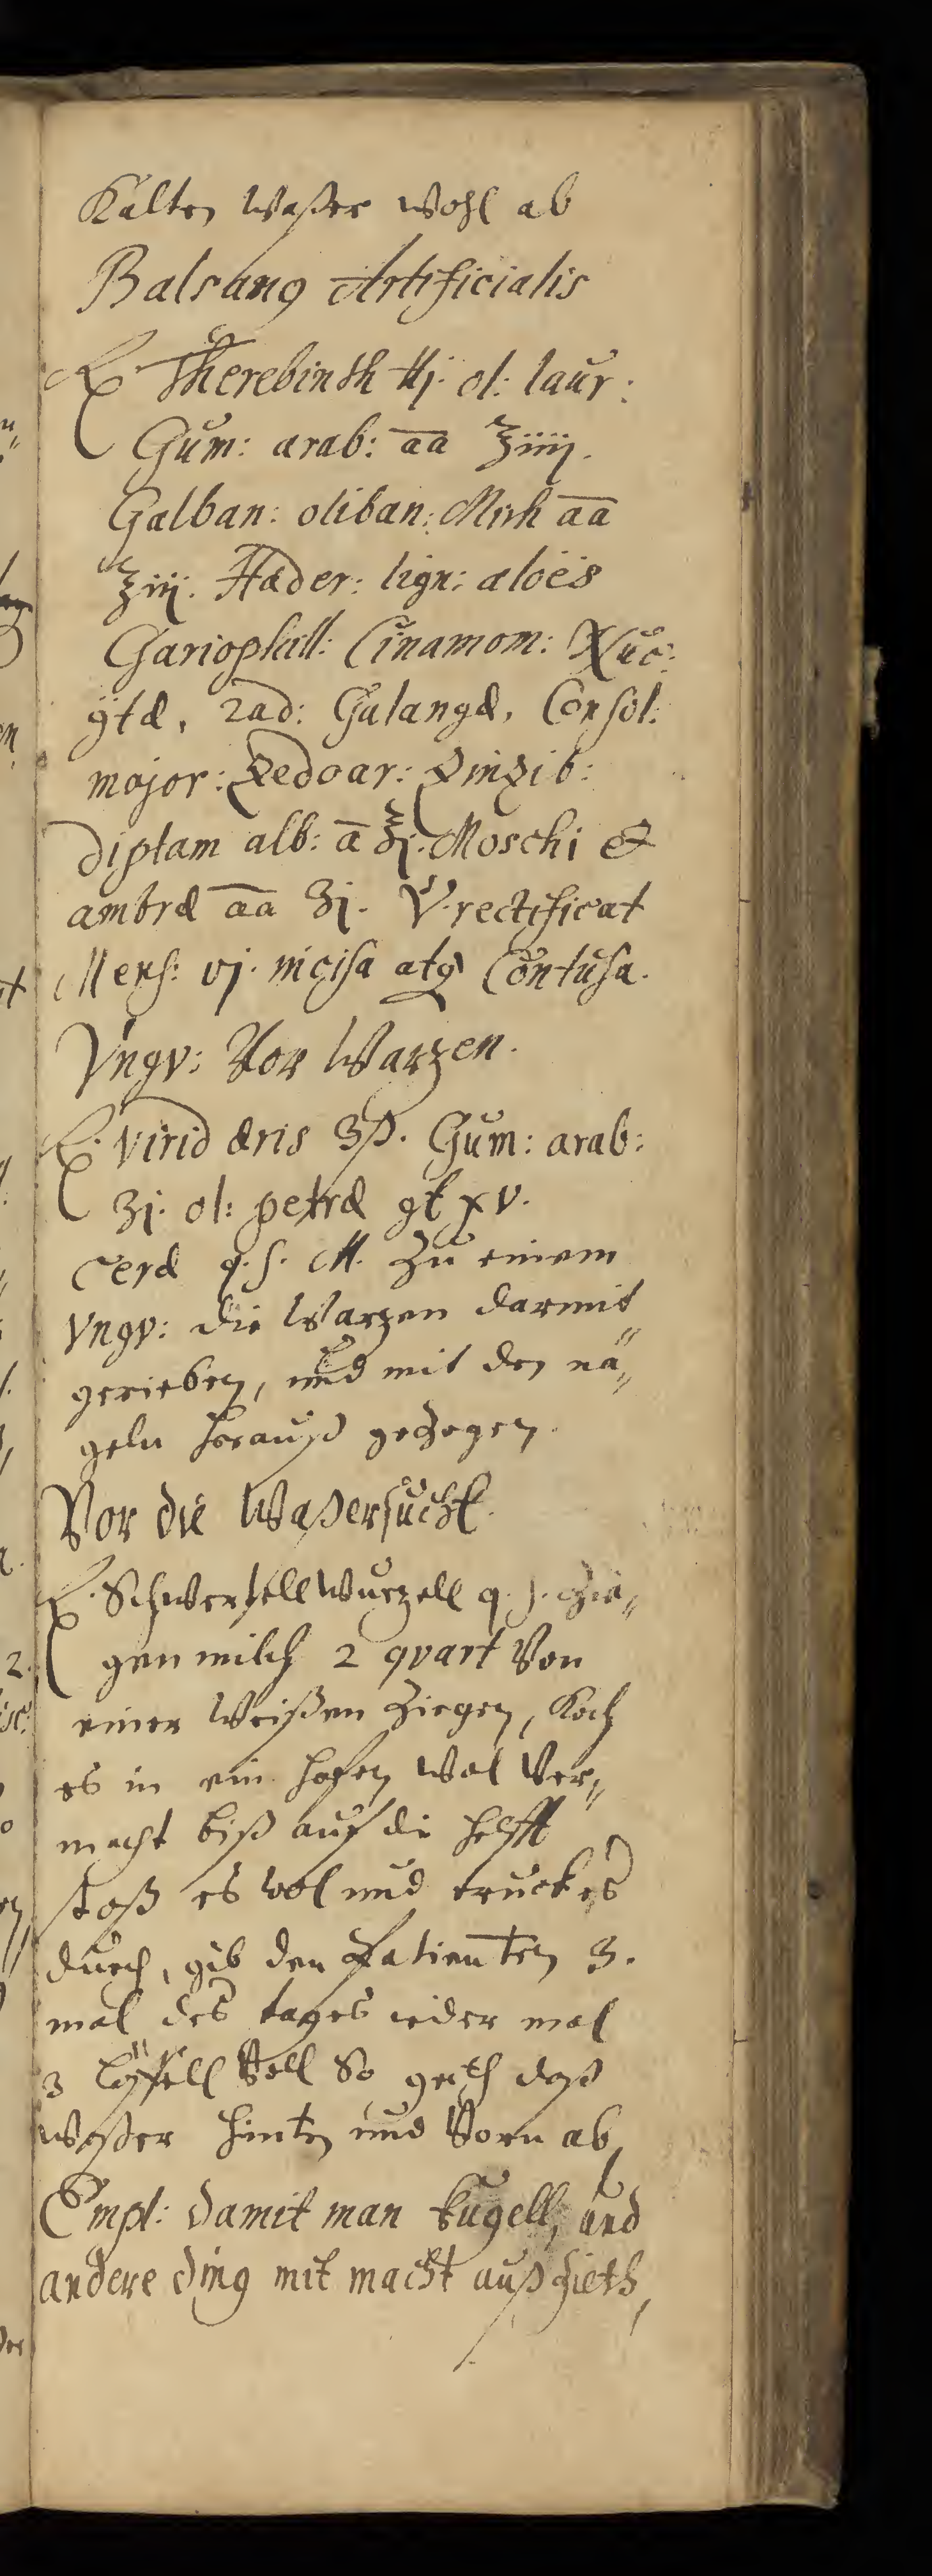 Kalten Waßer wohl ab
Balsamꝰ Artificialis
℞. Therebinth ℔j. ol: laur:
Gum: arab: āā ℥iiij.
Galban: oliban: Mirh āā
℥iij. Hæder: lign: aloës
Gariophill: Cinamom: Nuc:
gtæ, rad: Galangæ, Consol:
major: Zedoar: Zinzib:
Diptam alb: ā ℥j. Moschi et
ambræ āā ʒj. V. rectificat
Mens: vj. incisa atq Contusa.
Vngv: Vor Warzen.
℞. virid æris ʒß. Gum: arab:
ʒj. ol: petræ gt xv.
Ceræ q. s. M. Zu einem
Vngv: die Warzen darmit
gerieben, und mit den nä„
geln herauß gezogen.
Vor die Waßersucht.
℞. Schwertell Wurzell q. s. Zie„
genmilch 2 qvart Von
einer Weißen Ziegen, Koch
es in ein hafen Wol Ver„
macht biß auf die helfft
stoß es wol und truck es
durch, gib den Patienten 3.
mal des tages ieder mal
3 Löffell Voll So geth daß
Waßer hinten und Vorn ab,
Empl: damit man kugell, und
andere ding mit macht außzieth,